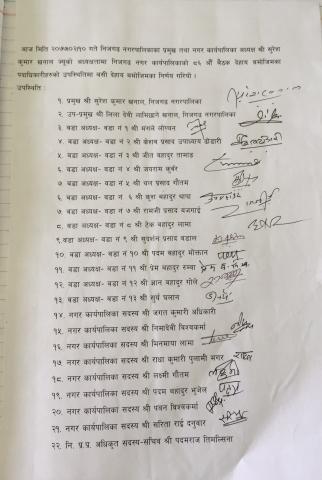 आज मिति २०७७०२।१० गते निजगढ नगरपालिकाका प्रमुख तथा नगर कार्यपालिका अध्यक्ष श्री सुरेश
कुमार खनाल ज्यूको अध्यक्षतामा निजगढ नगर कार्यपालिकाको ८६ औं बैठक देहाय बमोजिमका
पदाधिकारीहरुको उपस्थितिमा बसी देहाय बमोजिमका निर्णय गरियो ।
उपस्थिति :
१. प्रमुख श्री सुरेश कुमार खनाल, निजगढ नगरपालिका
२. उप-प्रमुख श्री लिला देवी लामिछाने खनाल, निजगढ नगरपालिका
३. वडा अध्यक्ष- वडा नं १ श्री मंगले लोप्चन
४. वडा अध्यक्ष- वडा नं २ श्री केशव प्रसाद उपाध्याय
५. वडा अध्यक्ष- वडा नं ३ श्री जीत बहादुर तामाङ
६. वडा अध्यक्ष- वडा नं ४ श्री जयराम कुवँर
७. वडा अध्यक्ष- वडा नं ५ श्री धन प्रसाद गौतम
६. वडा अध्यक्ष- वडा नं ६ श्री कुश बहादुर थापा
७. वडा अध्यक्ष- वडा नं ७ श्री रामजी प्रसाद बजगाई
८. वडा अध्यक्ष- वडा नं ८ श्री टेक बहादुर लामा
९. वडा अध्यक्ष- वडा नं ९ श्री सुदर्शन प्रसाद दाहाल
१०. वडा अध्यक्ष- वडा नं १० श्री पदम बहादुर मोक्तान
११. वडा अध्यक्ष- वडा नं ११ श्री प्रेम बहादुर रम्बा
१२. वडा अध्यक्ष- वडा नं १२ श्री ज्ञान बहादुर गोले
१३. वडा अध्यक्ष- वडा नं १३ श्री सुर्य घलान
१४. नगर कार्यपालिका सदस्य श्री जगत कुमारी अधिकारी
१५. नगर कार्यपालिका सदस्य श्री निमादेवी विश्वकर्मा
१६. नगर कार्यपालिका सदस्य श्री मिनमाया लामा
१७. नगर कार्यपालिका सदस्य श्री राधा कुमारी पुलामी मगर
१८. नगर कार्यपालिका सदस्य श्री लक्ष्मी गौतम
१९. नगर कार्यपालिका सदस्य श्री पदम बहादुर भुजेल
२०. नगर कार्यपालिका सदस्य श्री पवन विश्वकर्मा
२१. नगर कार्यपालिका सदस्य श्री सरिता राई दनुवार
२२. नि. प्र.प्र. अधिकृत सदस्य-सचिव श्री पदमराज तिमल्सिना